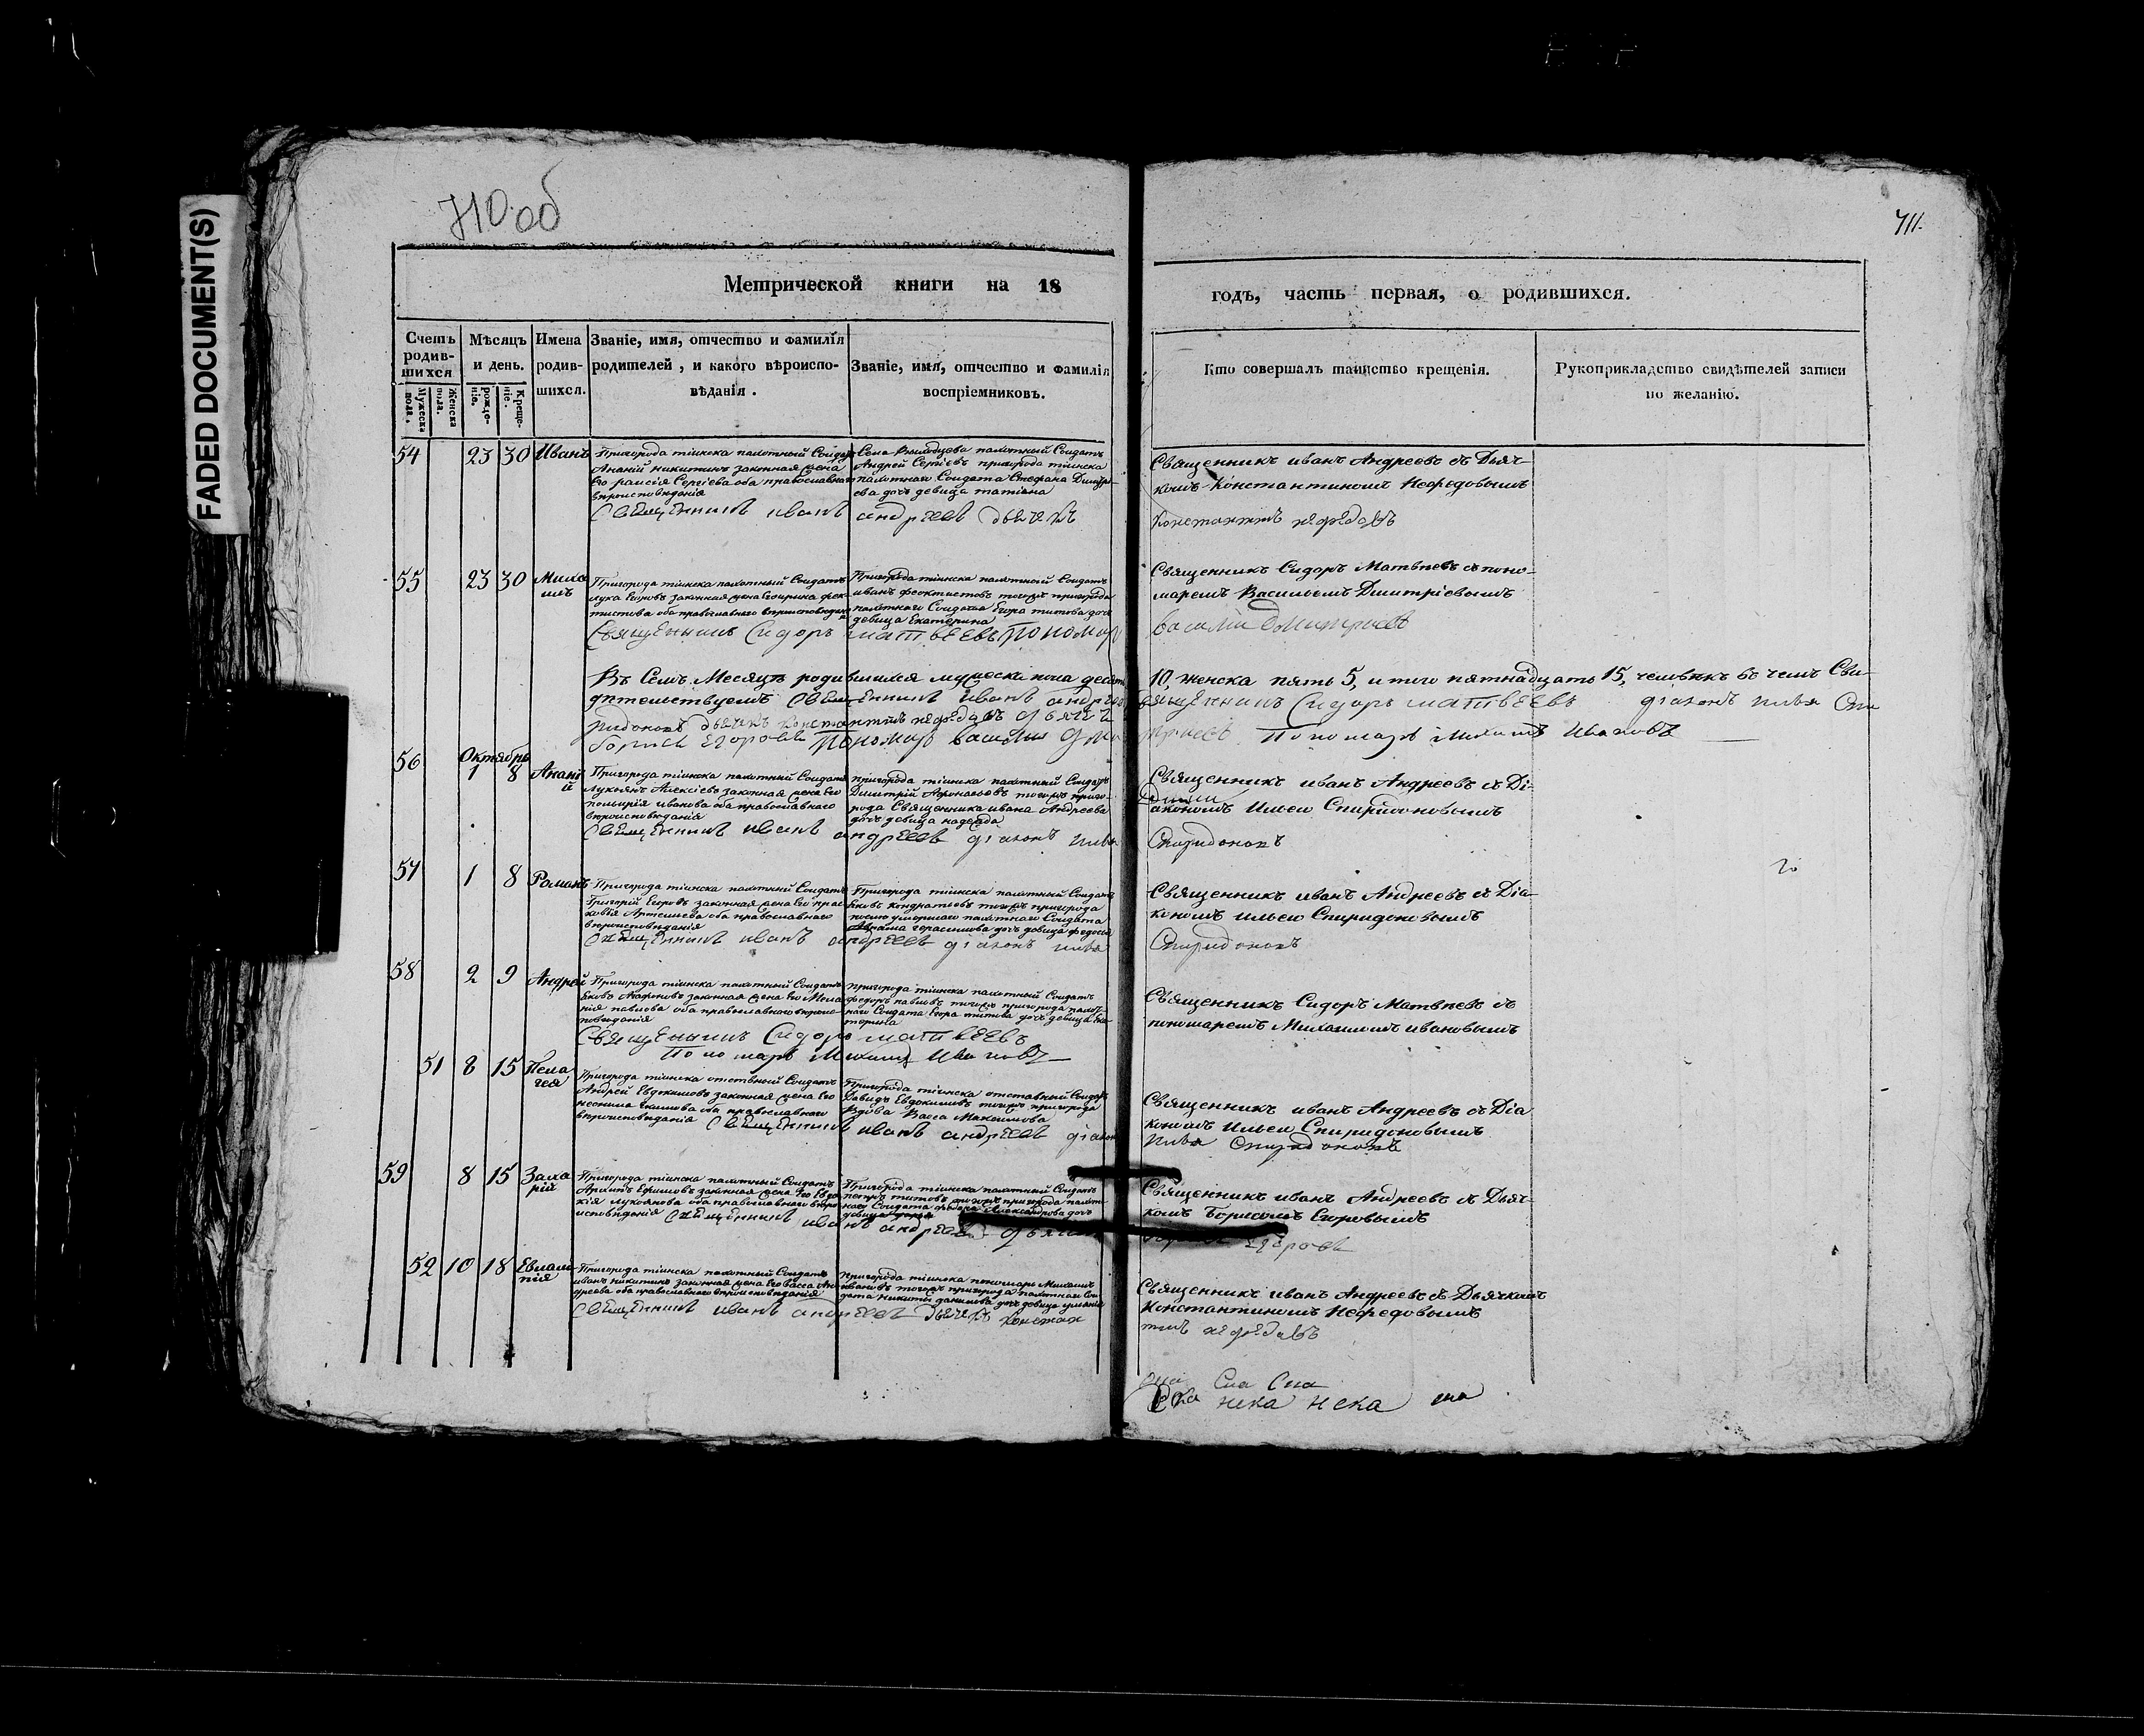 FADED DOCUMENT(S)
710 об
711.
Метрической книги на 18
годъ, часть первая, о родившихся.
Счетъ родившихся
Мужеска пола.
Женска пола.
Мѣсяцъ и день.
Рожденіе.
Крещеніе.
Имена родившихся.
Званіе, имя, отчество и фамилія родителей, и какого вѣроисповѣданія.
Званіе, имя, отчество и фамилія воспріемниковъ.
Кто совершалъ таинство крещенія.
Рукоприкладство свидѣтелей записи по желанію.
54 23 30 Иванъ
Пригорода тіинска пахотный Солдатъ
Ананій никитинъ законная жена
Его раисія Сергѣева оба православнаго
вѣроисповѣданія
Села пахотный Солдатъ
Андрей Сергѣевъ пригорода тіинска
пахотнаго Солдата Стефана
дочь девица татіана
Священникъ иванъ Андреевъ съ Дьяч-
комъ Константиномъ Нефедовымъ
Священникъ иванъ андреевъ дьячекъ
Константинъ нефедовъ
55 23 30 Миха
илъ
Пригорода тіинска пахотный Солдатъ
лука Егоровъ законная жена Его ирина фек-
тистова оба православнаго вѣроисповѣданія
Пригорода тіинска пахотный Солдатъ
иванъ феоктистовъ тогожъ пригорода
пахотнаго Солдата Егора титова дочь
девица Екатерина
Священникъ Сидоръ Матвѣевъ съ поно-
маремъ Васильемъ Димитріевымъ
Священникъ Сидоръ матвеевъ Пономар
василій Дмитриевъ
Въ Семъ Месяцѣ родившихся мужеска пола десять 10, женска пять 5, итого пятнадцать 15, человѣкъ въ чемъ Сви-
дѣтельствуемъ Священникъ Иванъ андреевъ Священникъ Сидоръ матвеевъ діаконъ илья Спи
ридоновъ дьячекъ константинъ нефедовъ дьячекъ
борисъ Егоровъ Пономарь василий Дмитриевъ Пономарь Михаилъ Ивановъ
Октябрь
56 1 8 Анані
й
Пригорода тіинска пахотный Солдатъ
Лукьянъ Алексѣевъ законная жена Его
ивано­ва оба православнаго
вѣроисповѣданія
пригорода тіинска пахотный Солдатъ
Димитрій Афонасьевъ тогожъ приго-
рода Священника ивана Андреева
дочь девица надежда
Священникъ иванъ Андреевъ съ Ді-
акономъ Ильею Спиридоновымъ
Священникъ иванъ андреевъ діаконъ илья
Спиридоновъ
57 1 8 Романъ
Пригорода тіинска пахотный Солдатъ
Григорій Егоровъ законная жена Его прас-
ковья Артемьева оба православнаго
вѣроисповѣданія
Пригорода тіинска пахотный Солдатъ
Яковъ кондратьевъ тогожъ пригорода
умершаго пахотнаго Солдата
герасимова дочь девица федосья
Священникъ иванъ Андреевъ съ Діа-
кономъ ильею Спиридоновымъ
Священникъ иванъ андреевъ діаконъ илья
Спиридоновъ
58 2 9 Андрей
Пригорода тіинска пахотный Солдатъ
Яковъ законная жена Его Мела-
нія павлова оба православнаго вѣроис-
повѣданія
пригорода тіинска пахотный Солдатъ
федоръ павловъ тогожъ пригорода пахот-
наго Солдата Егора титова дочь девица Ека-
терина
Священникъ Сидоръ Матвѣевъ съ
пономаремъ Михаиломъ ивановымъ
Священникъ Сидоръ матвеевъ
Пономарь Михаилъ Ивановъ
51 8 15 Пела
гея
Пригорода тіинска отставный Солдатъ
Андрей Евдокимовъ законная жена Его
неонила Екимова оба православнаго
вѣроисповѣданія
Пригорода тіинска отставный Солдатъ
Давидъ Евдокимовъ тогожъ пригорода
Вдова Васса Максимова
Священникъ иванъ Андреевъ съ Діа
кономъ Ильею Спиридоновымъ
Священникъ иванъ андреевъ діаконъ
илья Спиридоновъ
59 8 15 Заха
рій
Пригорода тіинска пахотный Солдатъ
Архипъ Ефимовъ законная жена Его Евдо
кія лукоянова оба православнаго вѣро
исповѣданія
Пригорода тіинска пахотный Солдатъ
петръ титовъ тогожъ пригорода пахот-
наго Солдата федора Александрова дочь
девица
Священникъ иванъ Андреевъ съ Дьяч-
комъ Борисомъ Егоровымъ
Священникъ иванъ андреевъ дьячекъ
Егоровъ
52 10 18 Евлам
пія
Пригорода тіинска пахотный Солдатъ
иванъ никитинъ законная жена Его васса Ан-
дреева оба православнаго вѣроисповѣданія
Пригорода тіинска пономарь Михаилъ
ивановъ тогожъ пригорода пахотнаго Сол
дата никиты данилова дочь девица
Священникъ иванъ Андреевъ съ Дьячкомъ
Константиномъ Нефедовымъ
Священникъ иванъ андреевъ дьячекъ констан
тинъ нефедовъ
Сна Сна
нека нека